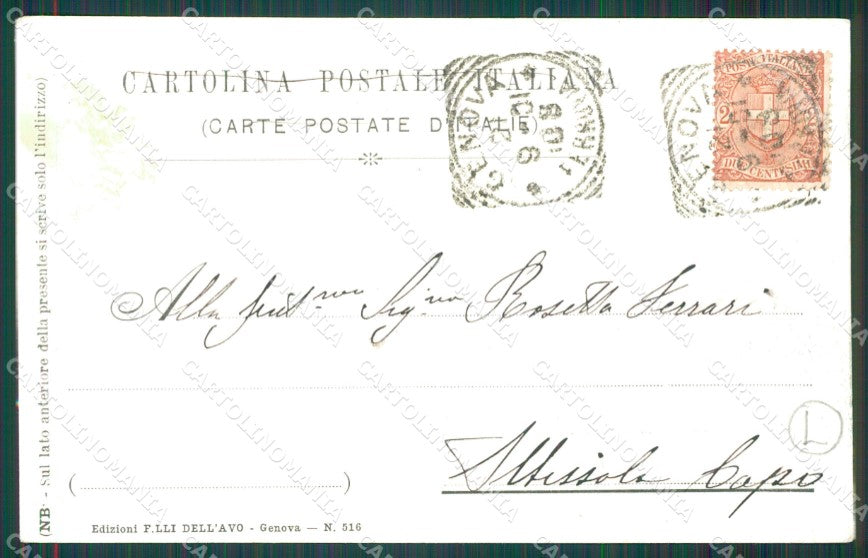 CARTOLINA POSTALE ITALIANA
(CARTE POSTALE D'ITALIE)
GENOVA
GENOVA
POSTE ITALIANE
2
DUE CENTESIMI
Alla Sig.na Rosetta Ferrari
Albissola Capo
L
( )
Edizioni F.LLI DELL'AVO - Genova — N. 516
(NB - Sul lato anteriore della presente si scrive solo l'indirizzo)
CARTOLINOMANIA